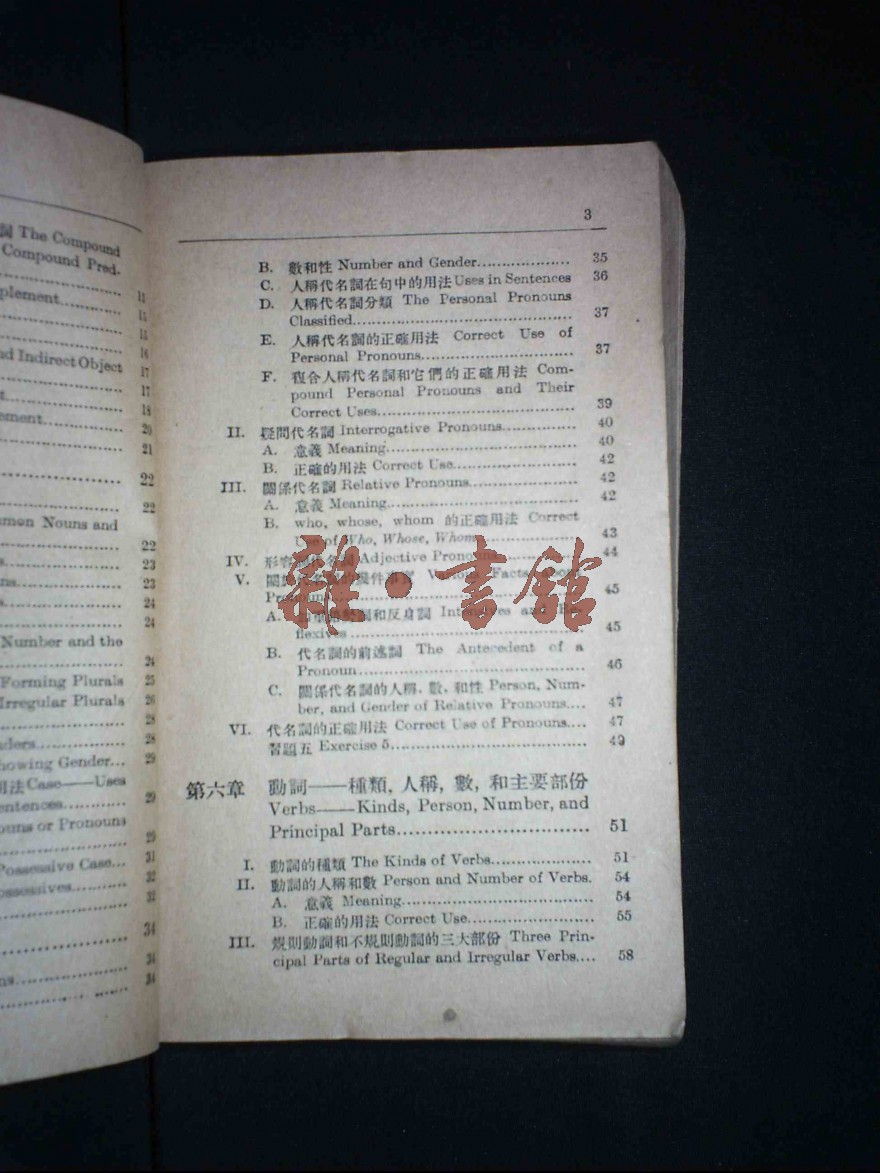 詞 The Compound
Compound Pred-
11
plement 15
15
16
nd Indirect Object
17
17
18
ement 20
21
22
22
mmon Nouns and
22
23
ns 23
24
24
Number and the
24
Forming Plurals 25
Irregular Plurals 26
28
ders 28
howing Gender... 29
用法Case——Uses
entences 29
ouns or Pronouns
29
Possessive Case... 31
ossessives 32
32
34
34
ns 34
3
B. 數和性 Number and Gender 35
C. 人稱代名詞在句中的用法 Uses in Sentences 36
D. 人稱代名詞分類 The Personal Pronouns
Classified 37
E. 人稱代名詞的正確用法 Correct Use of
Personal Pronouns 37
F. 複合人稱代名詞和它們的正確用法 Com-
pound Personal Pronouns and Their
Correct Uses 39
II. 疑問代名詞 Interrogative Pronouns 40
A. 意義 Meaning 40
B. 正確的用法 Correct Use 42
III. 關係代名詞 Relative Pronouns 42
A. 意義 Meaning 42
B. who, whose, whom 的正確用法 Correct
Use of Who, Whose, Whom 43
IV. 形容詞代名詞 Adjective Pronouns 44
V. 件事實 Various Facts About
Pronouns 45
雜·書館
A. 詞和反身詞 Intensives and Re-
flexives 45
B. 代名詞的前述詞 The Antecedent of a
Pronoun 46
C. 關係代名詞的人稱,數,和性 Person, Num-
ber, and Gender of Relative Pronouns.... 47
VI. 代名詞的正確用法 Correct Use of Pronouns.... 47
習題五 Exercise 5 49
第六章 動詞——種類,人稱,數,和主要部份
Verbs——Kinds, Person, Number, and
Principal Parts 51
I. 動詞的種類 The Kinds of Verbs 51
II. 動詞的人稱和數 Person and Number of Verbs. 54
A. 意義 Meaning 54
B. 正確的用法 Correct Use 55
III. 規則動詞和不規則動詞的三大部份 Three Prin-
cipal Parts of Regular and Irregular Verbs.... 58